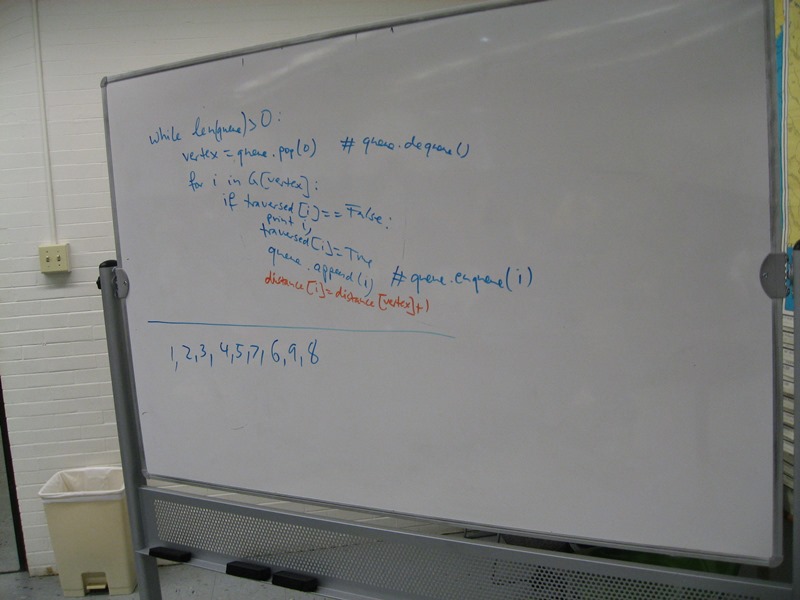 while len(queue)>0:
vertex = queue.pop(0) # queue.dequeue()
for i in G[vertex]:
if traversed[i]==False:
print i,
traversed[i]=True
queue.append(i) # queue.enqueue(i)
distance[i]=distance[vertex]+1
1,2,3,4,5,7,6,9,8